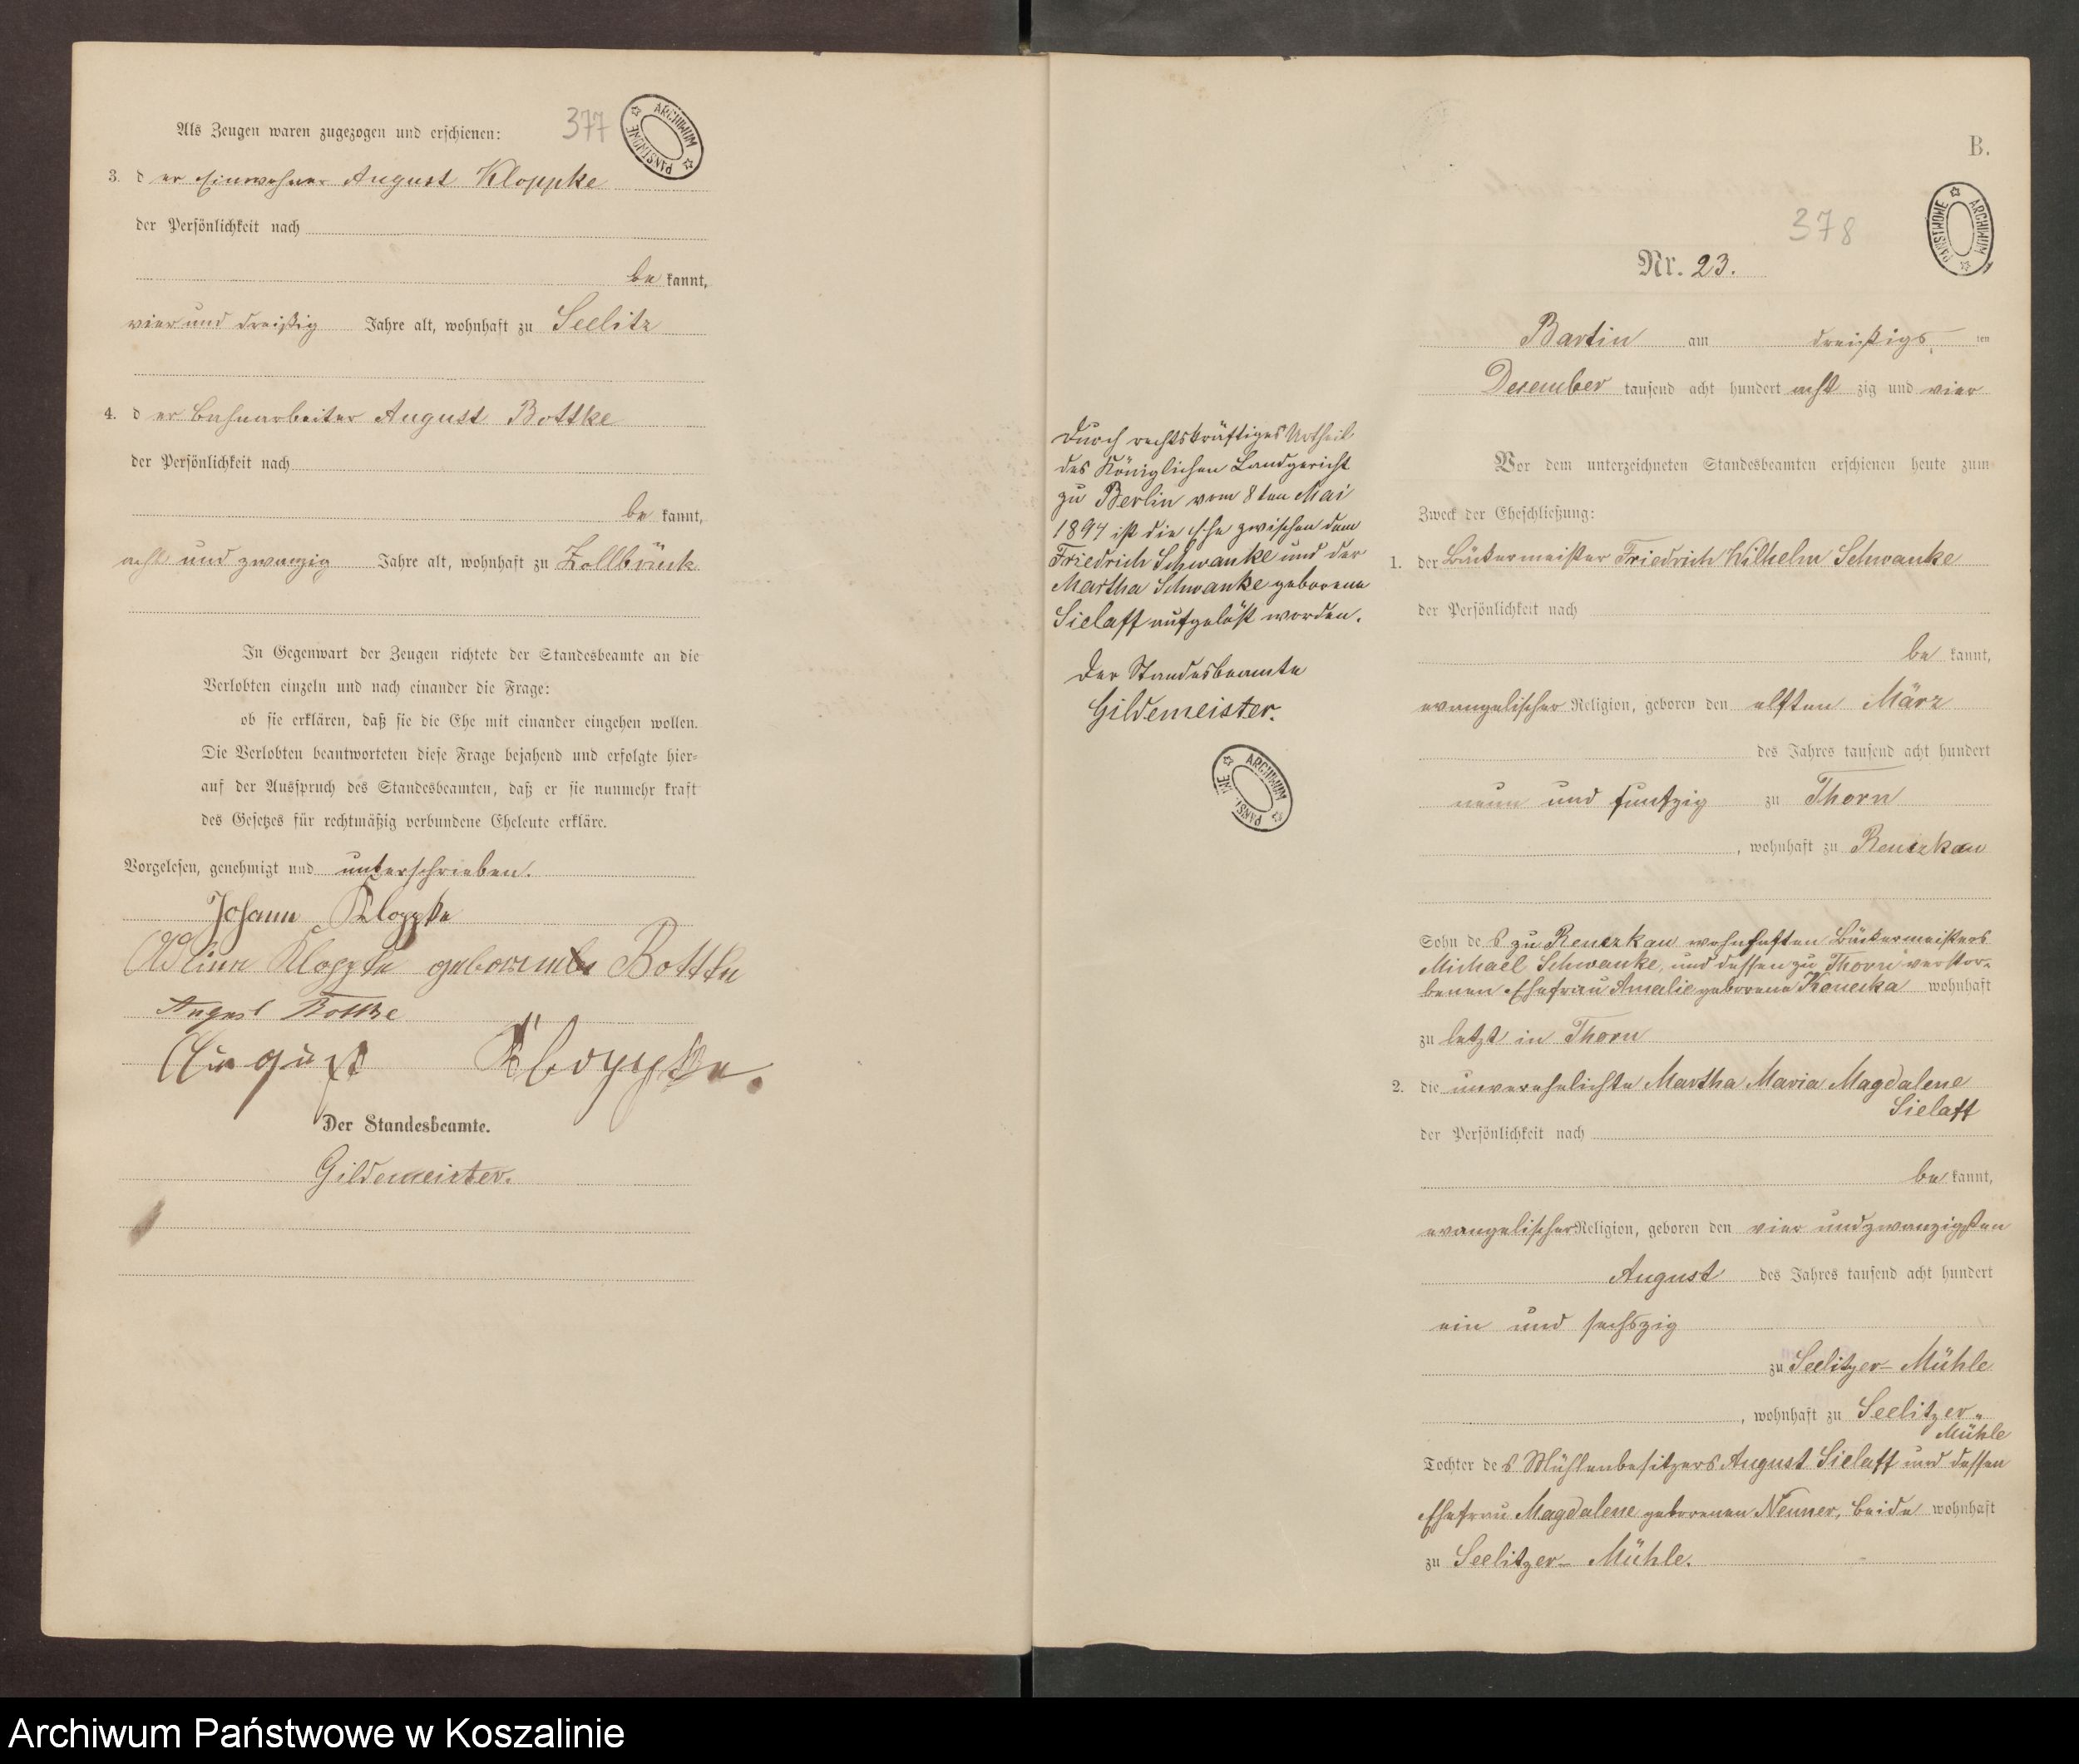 377
ARCHIWUM PAŃSTWOWE
Als Zeugen waren zugezogen und erschienen:
3. der Einwohner August Kloppke
der Persönlichkeit nach
be kannt,
vier und dreißig Jahre alt, wohnhaft zu Seelitz
4. der Bahnarbeiter August Bottke
der Persönlichkeit nach
be kannt,
acht und zwanzig Jahre alt, wohnhaft zu Zollbrück
In Gegenwart der Zeugen richtete der Standesbeamte an die
Verlobten einzeln und nach einander die Frage:
ob sie erklären, daß sie die Ehe mit einander eingehen wollen.
Die Verlobten beantworteten diese Frage bejahend und erfolgte hier-
auf der Ausspruch des Standesbeamten, daß er sie nunmehr kraft
des Gesetzes für rechtmäßig verbundene Eheleute erkläre.
Vorgelesen, genehmigt und unterschrieben.
Johann Kloppke
Kloppke Bottke
August Bottke
August Kloppke.
Der Standesbeamte.
Gildemeister.
B.
378
ARCHIWUM PAŃSTWOWE
Nr. 23.
Bartin am dreißigs ten
Dezember tausend acht hundert acht zig und vier
Vor dem unterzeichneten Standesbeamten erschienen heute zum
Zweck der Eheschließung:
1. der Bäckermeister Friedrich Wilhelm Schwanke
der Persönlichkeit nach
be kannt,
evangelischer Religion, geboren den elften März
des Jahres tausend acht hundert
neun und funfzig zu Thorn
, wohnhaft zu Renczkau
Sohn des zu Renczkau wohnhaften Bäckermeisters
Michael Schwanke, und dessen zu Thorn verstor-
benen Ehefrau Amalie geborene wohnhaft
zu letzt in Thorn
2. die unverehelichte Martha Maria Magdalene
Sielaff
der Persönlichkeit nach
be kannt,
evangelischer Religion, geboren den vier und zwanzigsten
August des Jahres tausend acht hundert
ein und sechszig
zu Seelitzer- Mühle
, wohnhaft zu Seelitzer-
Mühle
Tochter des Mühlenbesitzers August Sielaff und dessen
Ehefrau Magdalene geborenen Neuner, beide wohnhaft
zu Seelitzer- Mühle.
Durch rechtskräftiges Urtheil
des Königlichen Landgericht
zu Berlin vom 8ten Mai
1897 ist die Ehe zwischen dem
Friedrich Schwanke und der
Martha Schwanke geborene
Sielaff aufgelöst worden.
Der Standesbeamte
Gildemeister.
ARCHIWUM
Archiwum Państwowe w Koszalinie